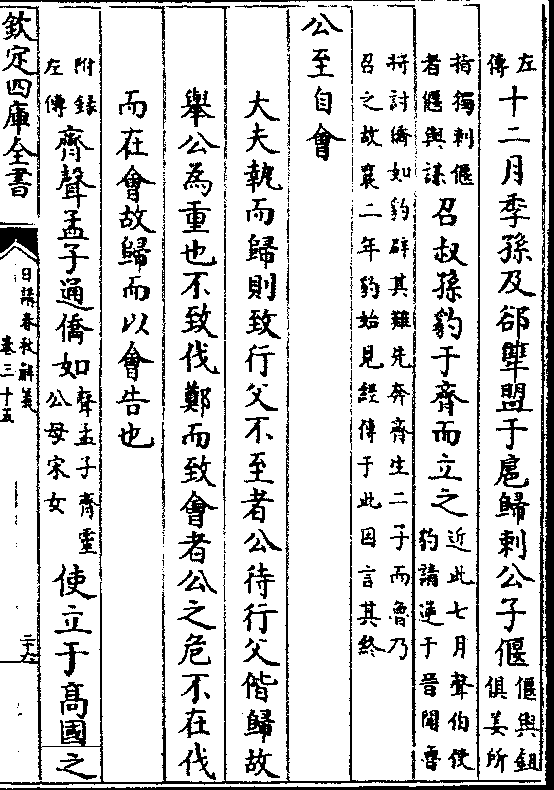 左傳十二月季孫及郤犫盟于扈歸刺公子偃偃與鉏俱姜所
指獨刺偃者偃與謀召叔孫豹于齊而立之近此七月聲伯使豹請逆于晉聞魯
將討僑如豹辟其難先奔齊生二子而魯乃召之故襄二年豹始見經傳于此因言其終
公至自會
大夫執而歸則致行父不至者公待行父偕歸故
舉公為重也不致伐鄭而致會者公之危不在伐
而在會故歸而以會告也
附録左傳齊聲孟子通僑如聲孟子齊靈公母宋女使立于髙國之
欽定四庫全書
日講春秋解義
卷三十五
二十六